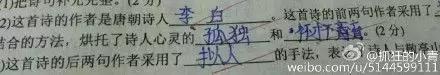 1)把诗句补充完整。(2分)
(2)这首诗的作者是唐朝诗人李白。这首诗的前两句作者采用了
结合的方法，烘托了诗人心灵的孤独和怀才
)这首诗的后两句作者采用了拟人的手法，表
@抓狂的小青
weibo.com/u/5144599111